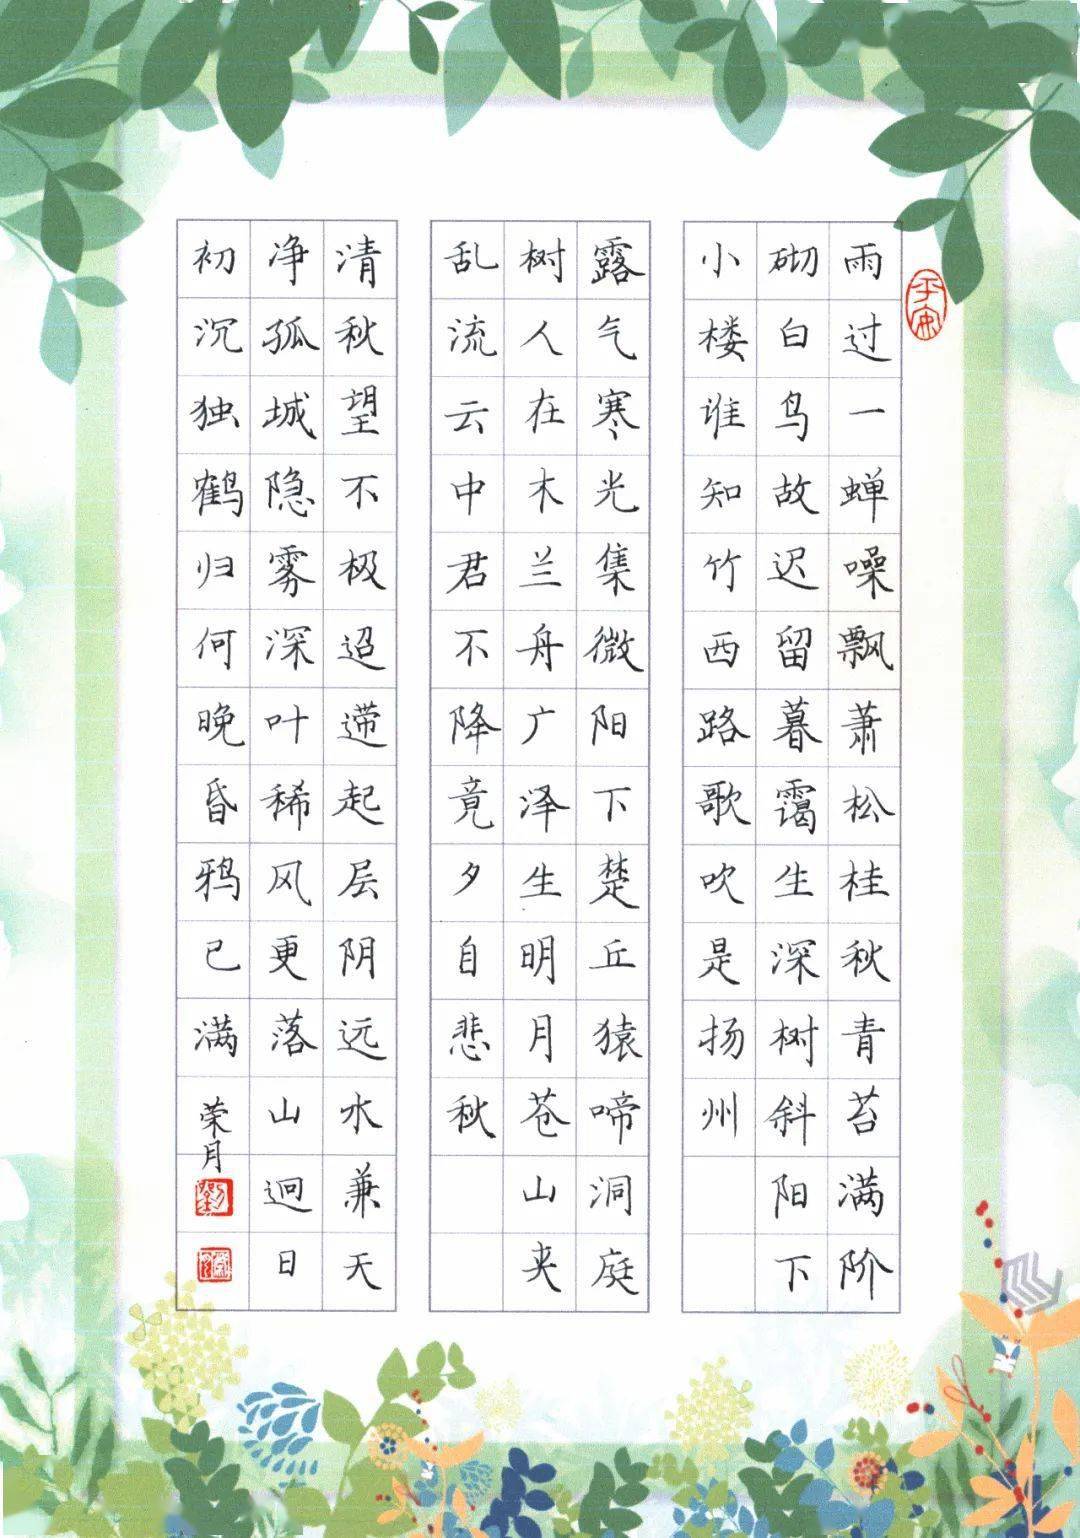 平安
雨过一蝉噪飘萧松桂秋青苔满阶
砌白鸟故迟留暮霭生深树斜阳下
小楼谁知竹西路歌吹是扬州
露气寒光集微阳下楚丘猿啼洞庭
树人在木兰舟广泽生明月苍山夹
乱流云中君不降竟夕自悲秋
清秋望不极迢遰起层阴远水兼天
净孤城隐雾深叶稀风更落山迥日
初沉独鹤归何晚昏鸦已满
荣月
劉